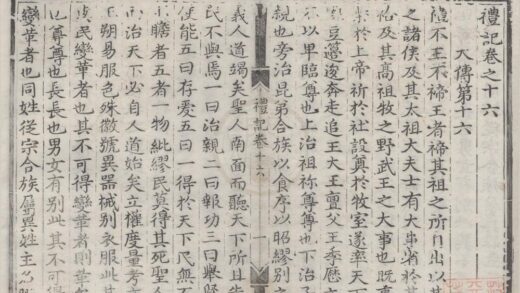 禮記卷之十六
大傳第十六
禮不王不禘王者禘其祖之所自出以其
之諸侯及其太祖大夫士有大事省於其
祫及其高祖牧之野武王之大事也既事
柴於上帝祈於社設奠於牧室遂率天下
豆籩逡奔走追王大王亶父王季歷
不以卑臨尊也上治祖禰尊尊也下治子
親也旁治昆弟合族以食序以昭繆別
禮記卷十六 一
義人道竭矣聖人南面而聽天下所且先
民不與焉一曰治親二曰報功三曰舉賢
使能五曰存愛五者一得於天下民無不
贍者五者一物紕繆民莫得其死聖人
治天下必自人道始矣立權度量考文
朔易服色殊徽號異器械別衣服此其
與民變革者也其不可得變革者則有
也尊尊也長長也男女有別此其不可得
變革者也同姓從宗合族屬異姓主名